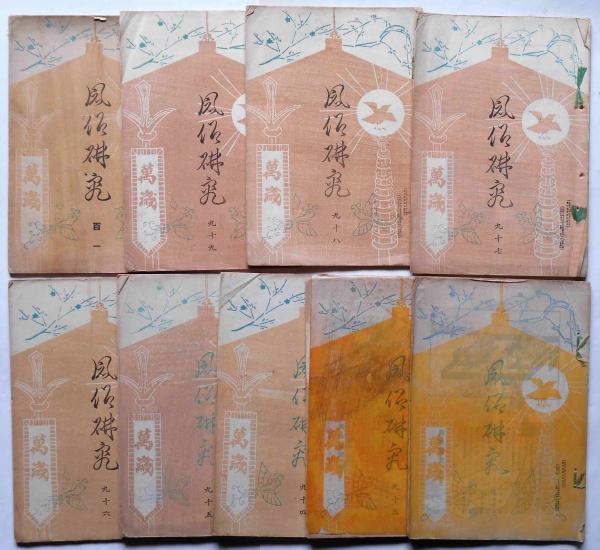 風俗研究
百一
萬歳
風俗研究
九十九
萬歳
風俗研究
九十八
萬歳
風俗研究
九十七
萬歳
風俗研究
九十六
萬歳
風俗研究
九十五
萬歳
風俗研究
九十四
萬歳
風俗研究
九十三
萬歳
風俗研究
萬歳